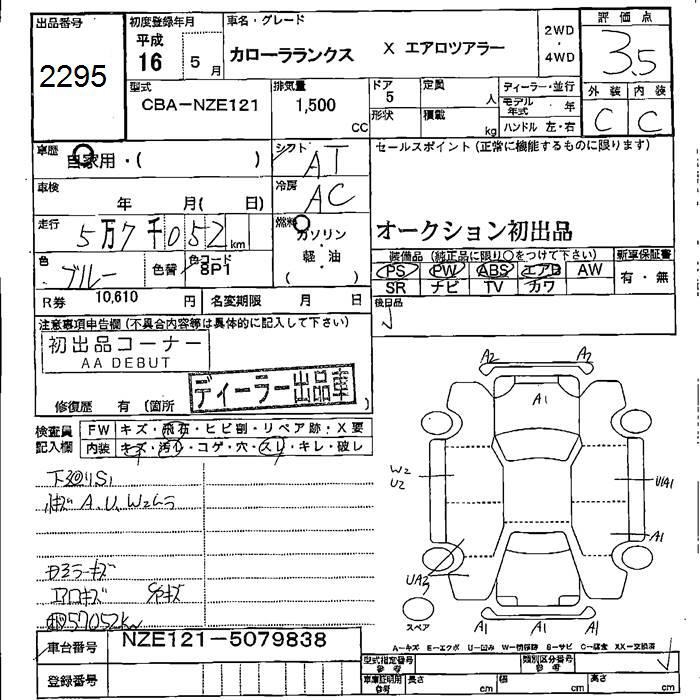 出品番号
2295
初度登録年月
平成
16 5月
車名・グレード
カローラランクス X エアロツアラー
2WD
・
4WD
評価点
3.5
外装 内装
C C
型式
CBA-NZE121
排気量
1,500
CC
ドア
5
定員
人
形状
積載
kg
ディーラー・並行
モデル年式 ・ 年
ハンドル 左・右
車歴
自家用・( )
シフト
AT
車検
年 月( 日)
冷房
AC
走行
5万7千052 km
燃料
ガソリン
・
軽・油
( )
セールスポイント(正常に機能するものに限ります)
オークション初出品
色
ブルー
色替
色コード
8P1
装備品(純正品に限り○をつけて下さい)
PS PW ABS エアB AW
SR ナビ TV カワ
新車保証書
有・無
R券 10,610 円
名変期限 月 日
後日品
注意事項申告欄(不具合内容等は具体的に記入して下さい)
初出品コーナー
AA DEBUT
ディーラー出品車
修復歴 有(箇所 )
検査員
記入欄
FW キズ・飛石・ヒビ割・リペア跡・X要
内装 キズ・汚レ・コゲ・穴・スレ・キレ・破レ
A.U.W2ムラ
ドアミラーキズ
エアロキズ
57052km
車台番号
NZE121-5079838
登録番号
A2 A2
A1
W2
U2
U1A1
A1
UA2
スペア
A1 A1
A-キズ E-エクボ U-凹み W-切保跡 S-サビ C-腐食 XX-交換済
型式指定番号
参考
類別区分番号
参考
車庫証明用
参考
長さ
cm
巾
cm
高さ
cm